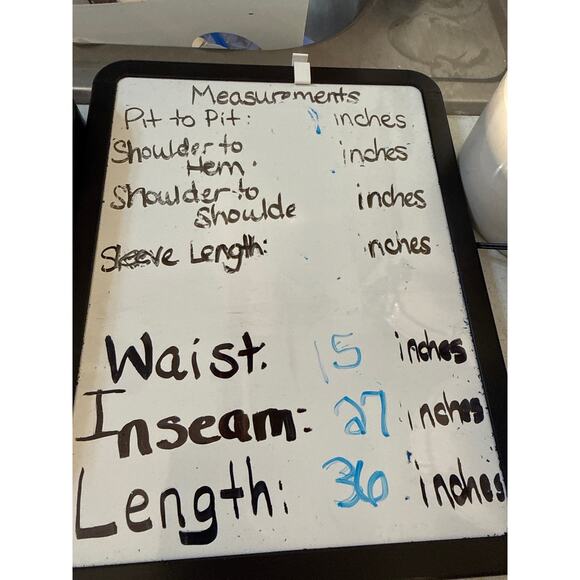 Measurements
Pit to Pit: inches
Shoulder to
Hem. inches
Shoulder to
Shoulde inches
Sleeve Length: nches
Waist: 15 inches
Inseam: 27 inches
Length: 36 inches